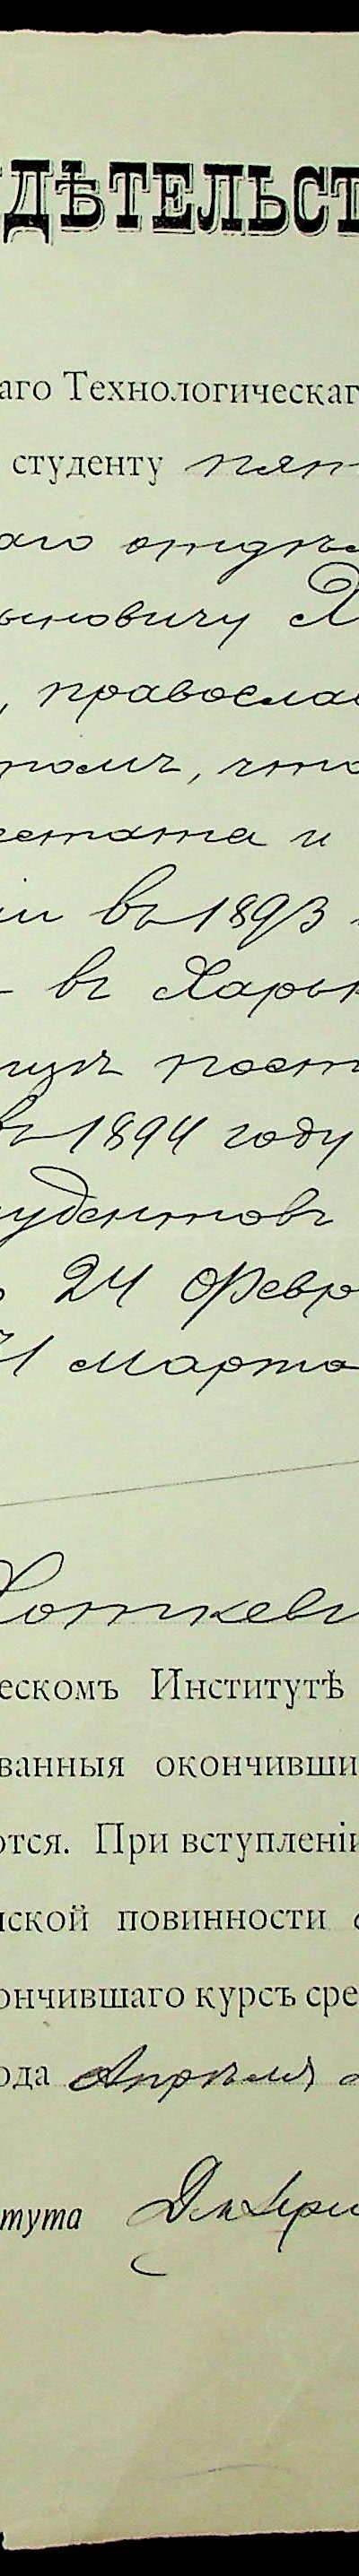 ДѢТЕЛЬСТ
аго Технологическаг
студенту пят
аго отдѣл
ыновичу Х
, православ
томъ, что
естата и
іи въ 1893
въ Харьк
ицъ пост
въ 1894 году
тудентовъ
24 Февр
31 марта
Хоткеви
ескомъ Институтѣ
ванныя окончивши
ются. При вступленіи
нской повинности
ончившаго курсъ сре
ода Апрѣля
тута